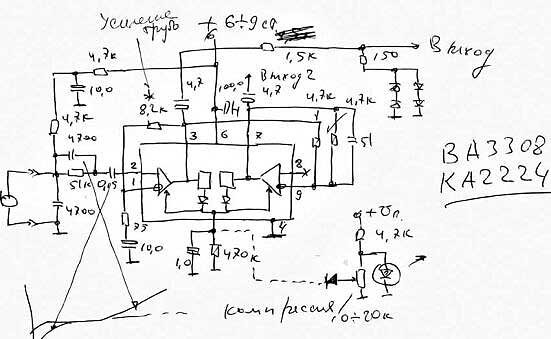 Усиление
грубо
+ 6÷9 ст
6
4,7к
10,0
4,7
1,5к
150
Выход
Выход 2
100,0
4,7
4,7к
4,7к
51
*
8,2к
4,7к
4700
51к
0,05
4700
3
6
7
2
1
8
9
4
75
10,0
1,0
470к
BA3308
KA2224
+Uп.
4,7к
10÷20к
компрессия